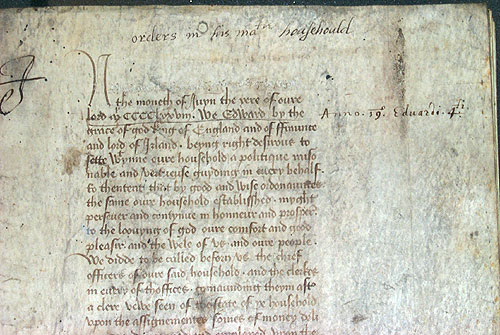 orders in his ma:ties househould
In
the moneth of Juyn the yere of oure
lord M CCCC lxxviij. We Edward by the
grace of god king of England and of ffraunce
and lord of Irland. beyng right desirous to
sette wynne oure household a politique reso
nable and vertueuse guyding in every behalf.
to thentent that by good and wise ordonaunces
the same oure household establisshed. myght
persever and contynue in honneur and prosper.
to the lovyng of god oure comfort and good
pleasir and the wele of us. and oure people.
We didde to be called before us the chief
officers of oure said household. and the clerkes
in every of thoffices. comaunding theym aft
a clere veue seen of thestate of þe household
upon the assignementes somes of money
upon the
Anno. 19o. Eduardi. 4ti